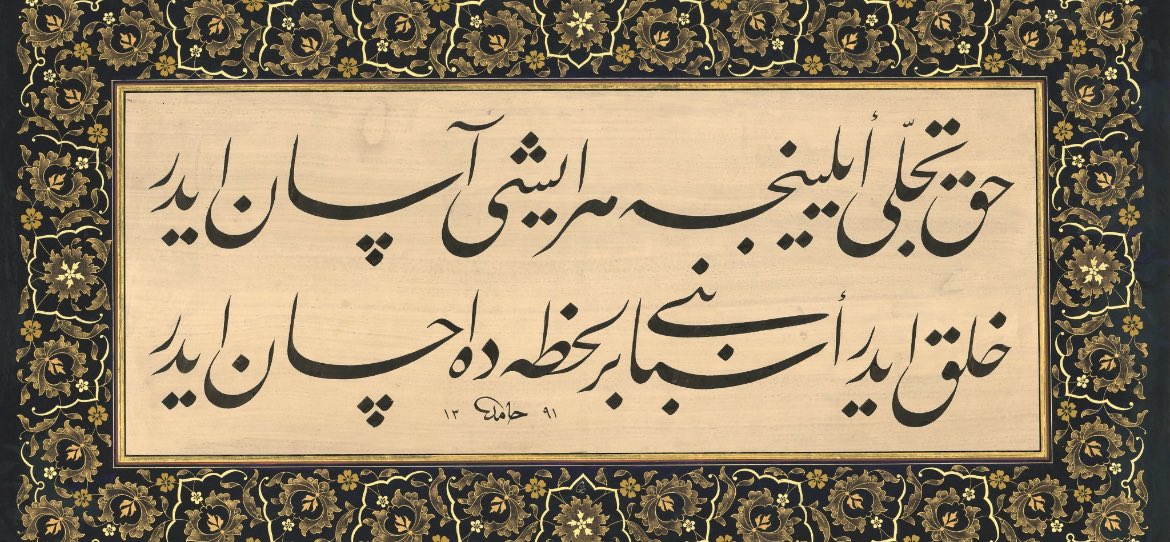 حق تجلّی أیلینجه هر ایشی آسان ایدر
خلق ایدر أسبابنی بر لحظه ده احسان ایدر
٩١ حامد ١٣